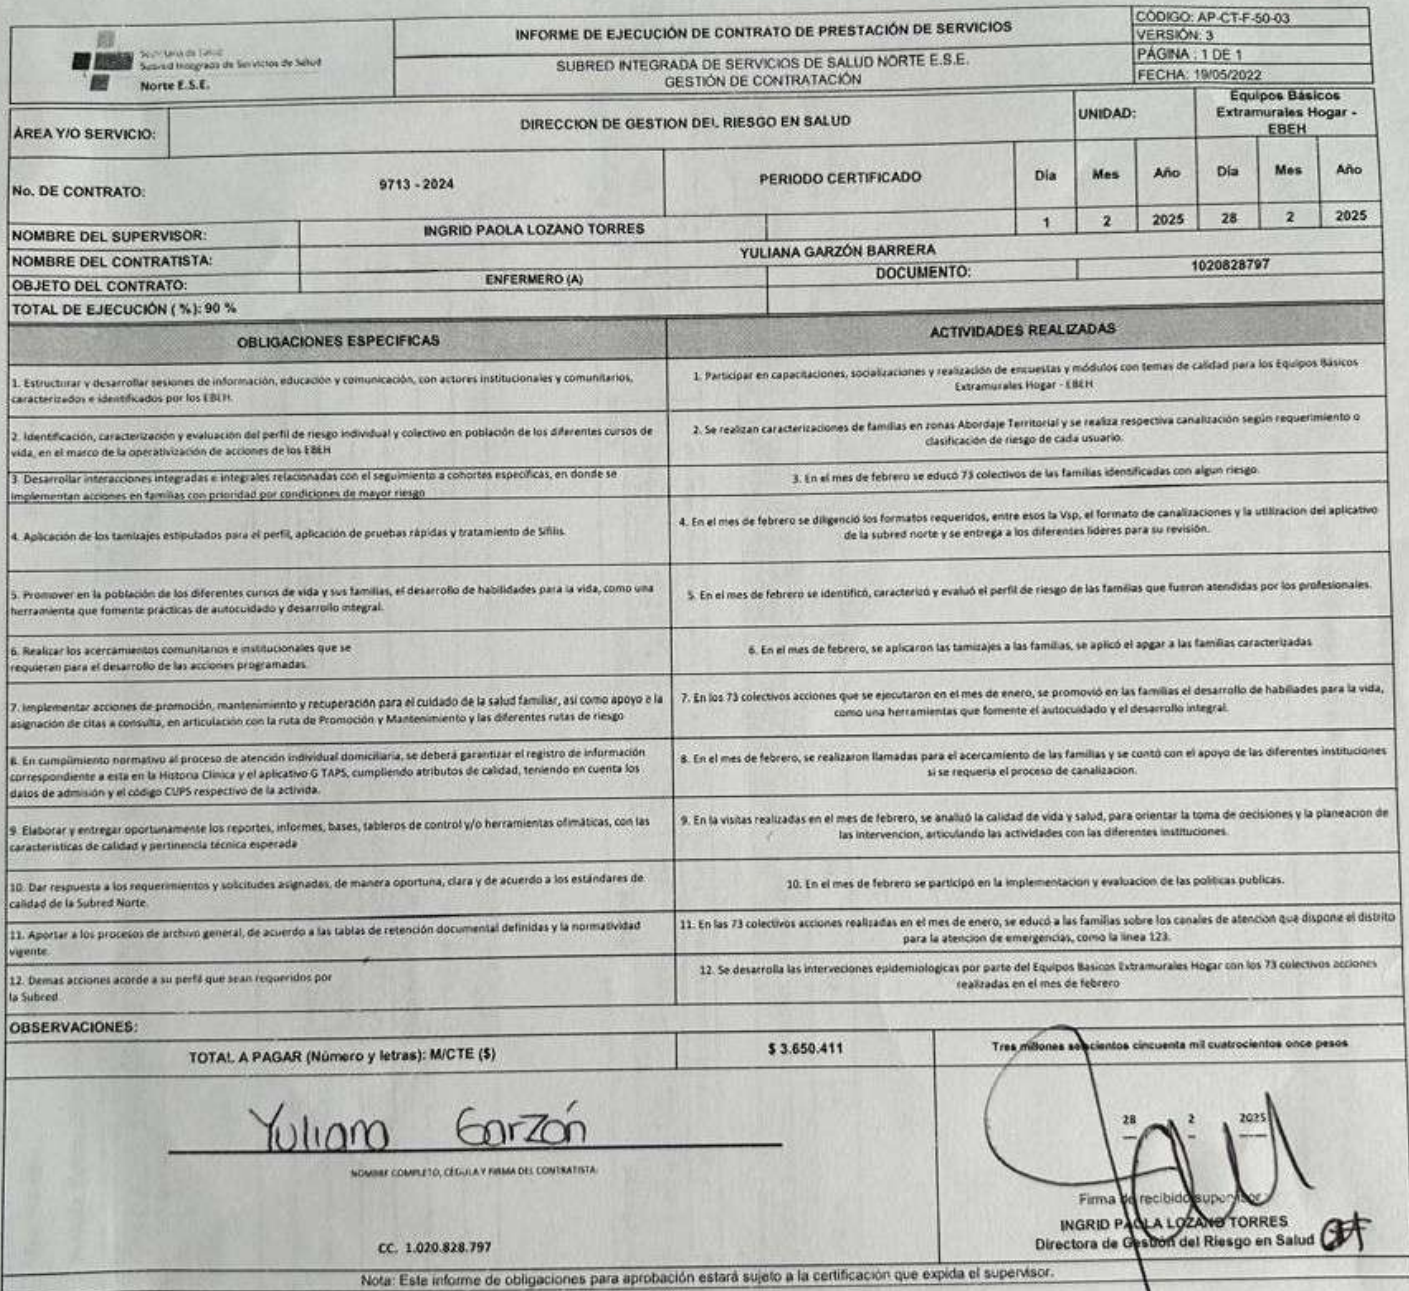 Secretaría de Salud
Subred Integrada de Servicios de Salud
Norte E.S.E.
INFORME DE EJECUCIÓN DE CONTRATO DE PRESTACIÓN DE SERVICIOS
SUBRED INTEGRADA DE SERVICIOS DE SALUD NORTE E.S.E.
GESTIÓN DE CONTRATACIÓN
CÓDIGO: AP-CT-F-50-03
VERSIÓN: 3
PÁGINA : 1 DE 1
FECHA: 19/05/2022
ÁREA Y/O SERVICIO:
DIRECCION DE GESTION DEL RIESGO EN SALUD
UNIDAD:
Equipos Básicos
Extramurales Hogar -
EBEH
No. DE CONTRATO:
9713 - 2024
PERIODO CERTIFICADO
Día Mes Año Día Mes Año
1 2 2025 28 2 2025
NOMBRE DEL SUPERVISOR:
INGRID PAOLA LOZANO TORRES
NOMBRE DEL CONTRATISTA:
YULIANA GARZÓN BARRERA
OBJETO DEL CONTRATO:
ENFERMERO (A)
DOCUMENTO:
1020828797
TOTAL DE EJECUCIÓN ( %): 90 %
OBLIGACIONES ESPECIFICAS
ACTIVIDADES REALIZADAS
1. Estructurar y desarrollar sesiones de información, educación y comunicación, con actores institucionales y comunitarios,
caracterizados e identificados por los EBEH.
1. Participar en capacitaciones, socializaciones y realización de encuestas y módulos con temas de calidad para los Equipos Básicos
Extramurales Hogar - EBEH
2. Identificación, caracterización y evaluación del perfil de riesgo individual y colectivo en población de los diferentes cursos de
vida, en el marco de la operativización de acciones de los EBEH
2. Se realizan caracterizaciones de familias en zonas Abordaje Territorial y se realiza respectiva canalización según requerimiento o
clasificación de riesgo de cada usuario.
3. Desarrollar interacciones integradas e integrales relacionadas con el seguimiento a cohortes específicas, en donde se
implementan acciones en familias con prioridad por condiciones de mayor riesgo
3. En el mes de febrero se educó 73 colectivos de las familias identificadas con algun riesgo.
4. Aplicación de los tamizajes estipulados para el perfil, aplicación de pruebas rápidas y tratamiento de Sífilis.
4. En el mes de febrero se diligenció los formatos requeridos, entre esos la Vsp, el formato de canalizaciones y la utilizacion del aplicativo
de la subred norte y se entrega a los diferentes lideres para su revisión.
5. Promover en la población de los diferentes cursos de vida y sus familias, el desarrollo de habilidades para la vida, como una
herramienta que fomente prácticas de autocuidado y desarrollo integral.
5. En el mes de febrero se identificó, caracterizó y evaluó el perfil de riesgo de las familias que fueron atendidas por los profesionales.
6. Realizar los acercamientos comunitarios e institucionales que se
requieran para el desarrollo de las acciones programadas.
6. En el mes de febrero, se aplicaron las tamizajes a las familias, se aplicó el apgar a las familias caracterizadas
7. Implementar acciones de promoción, mantenimiento y recuperación para el cuidado de la salud familiar, así como apoyo a la
asignación de citas a consulta, en articulación con la ruta de Promoción y Mantenimiento y las diferentes rutas de riesgo
7. En los 73 colectivos acciones que se ejecutaron en el mes de enero, se promovió en las familias el desarrollo de habiliades para la vida,
como una herramientas que fomente el autocuidado y el desarrollo integral.
8. En cumplimiento normativo al proceso de atención individual domiciliaria, se deberá garantizar el registro de información
correspondiente a esta en la Historia Clínica y el aplicativo G TAPS, cumpliendo atributos de calidad, teniendo en cuenta los
datos de admisión y el código CUPS respectivo de la activida.
8. En el mes de febrero, se realizaron llamadas para el acercamiento de las familias y se contó con el apoyo de las diferentes instituciones
si se requeria el proceso de canalizacion.
9. Elaborar y entregar oportunamente los reportes, informes, bases, tableros de control y/o herramientas ofimáticas, con las
características de calidad y pertinencia técnica esperada
9. En la visitas realizadas en el mes de febrero, se analizó la calidad de vida y salud, para orientar la toma de decisiones y la planeacion de
las intervencion, articulando las actividades con las diferentes instituciones.
10. Dar respuesta a los requerimientos y solicitudes asignadas, de manera oportuna, clara y de acuerdo a los estándares de
calidad de la Subred Norte.
10. En el mes de febrero se participó en la implementacion y evaluacion de las politicas publicas.
11. Aportar a los procesos de archivo general, de acuerdo a las tablas de retención documental definidas y la normatividad
vigente.
11. En las 73 colectivos acciones realizadas en el mes de enero, se educó a las familias sobre los canales de atencion que dispone el distrito
para la atencion de emergencias, como la linea 123.
12. Demas acciones acorde a su perfil que sean requeridos por
la Subred
12. Se desarrolla las interveciones epidemiologicas por parte del Equipos Basicos Extramurales Hogar con los 73 colectivos acciones
realizadas en el mes de febrero
OBSERVACIONES:
TOTAL A PAGAR (Número y letras): M/CTE ($)
$ 3.650.411
Tres millones seiscientos cincuenta mil cuatrocientos once pesos
Yuliana Garzón
NOMBRE COMPLETO, CÉDULA Y FIRMA DEL CONTRATISTA:
CC. 1.020.828.797
28 2 2025
Firma de recibido supervisor
INGRID PAOLA LOZANO TORRES
Directora de Gestión del Riesgo en Salud
Nota: Este informe de obligaciones para aprobación estará sujeto a la certificación que expida el supervisor.